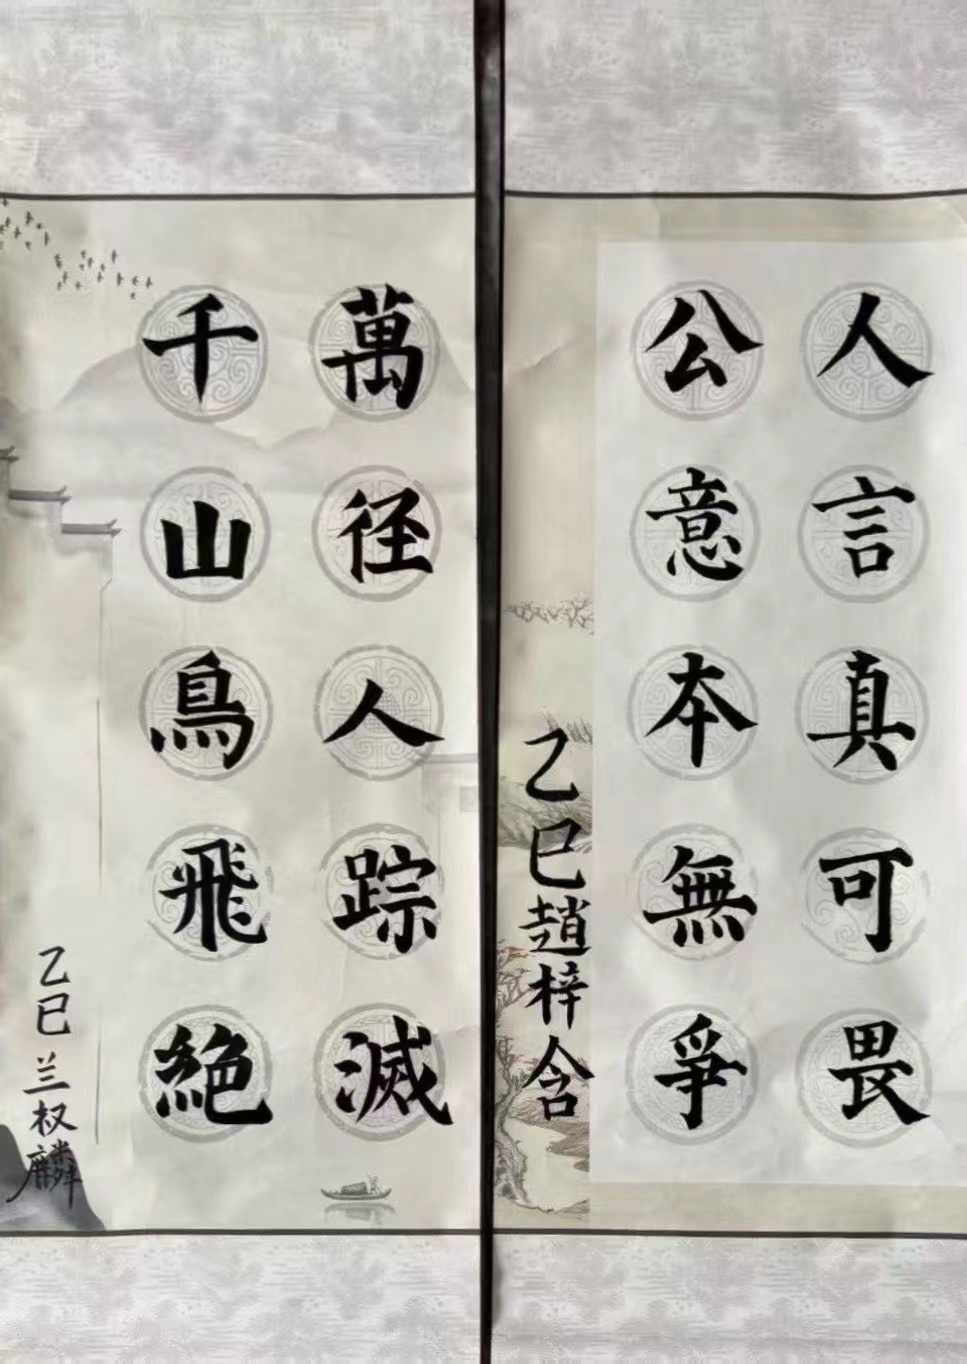 人言真可畏
公意本無爭
乙巳趙梓含
萬径人踪滅
千山鳥飛絶
乙巳兰权麟